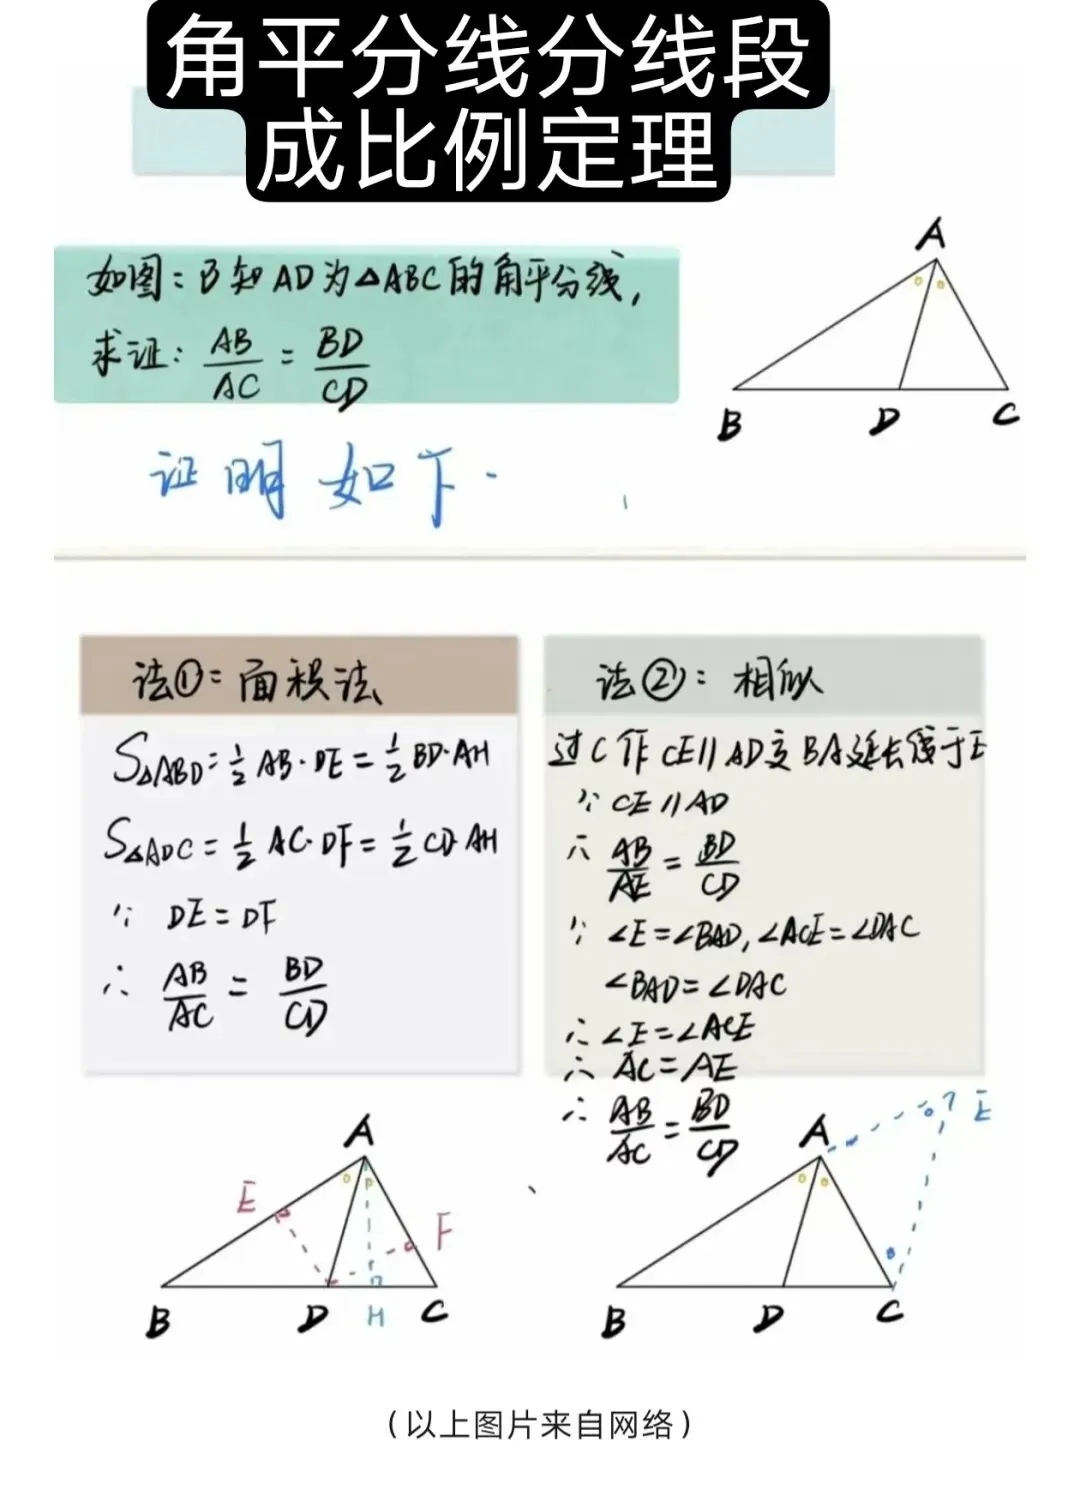 角平分线分线段
成比例定理
如图：已知AD为△ABC的角平分线，
求证：AB/AC = BD/CD
A
B
D
C
证明如下.
法①：面积法
S△ABD=½AB·DE=½BD·AH
S△ADC=½AC·DF=½CD·AH
∵ DE=DF
∴ AB/AC = BD/CD
法②：相似
过C作CE∥AD交BA延长线于E
∵ CE∥AD
∴ AB/AE = BD/CD
∵ ∠E=∠BAD,∠ACE=∠DAC
∠BAD=∠DAC
∴ ∠E=∠ACE
∴ AC=AE
∴ AB/AC = BD/CD
A
E
F
B
D
H
C
A
E
B
D
C
（以上图片来自网络）